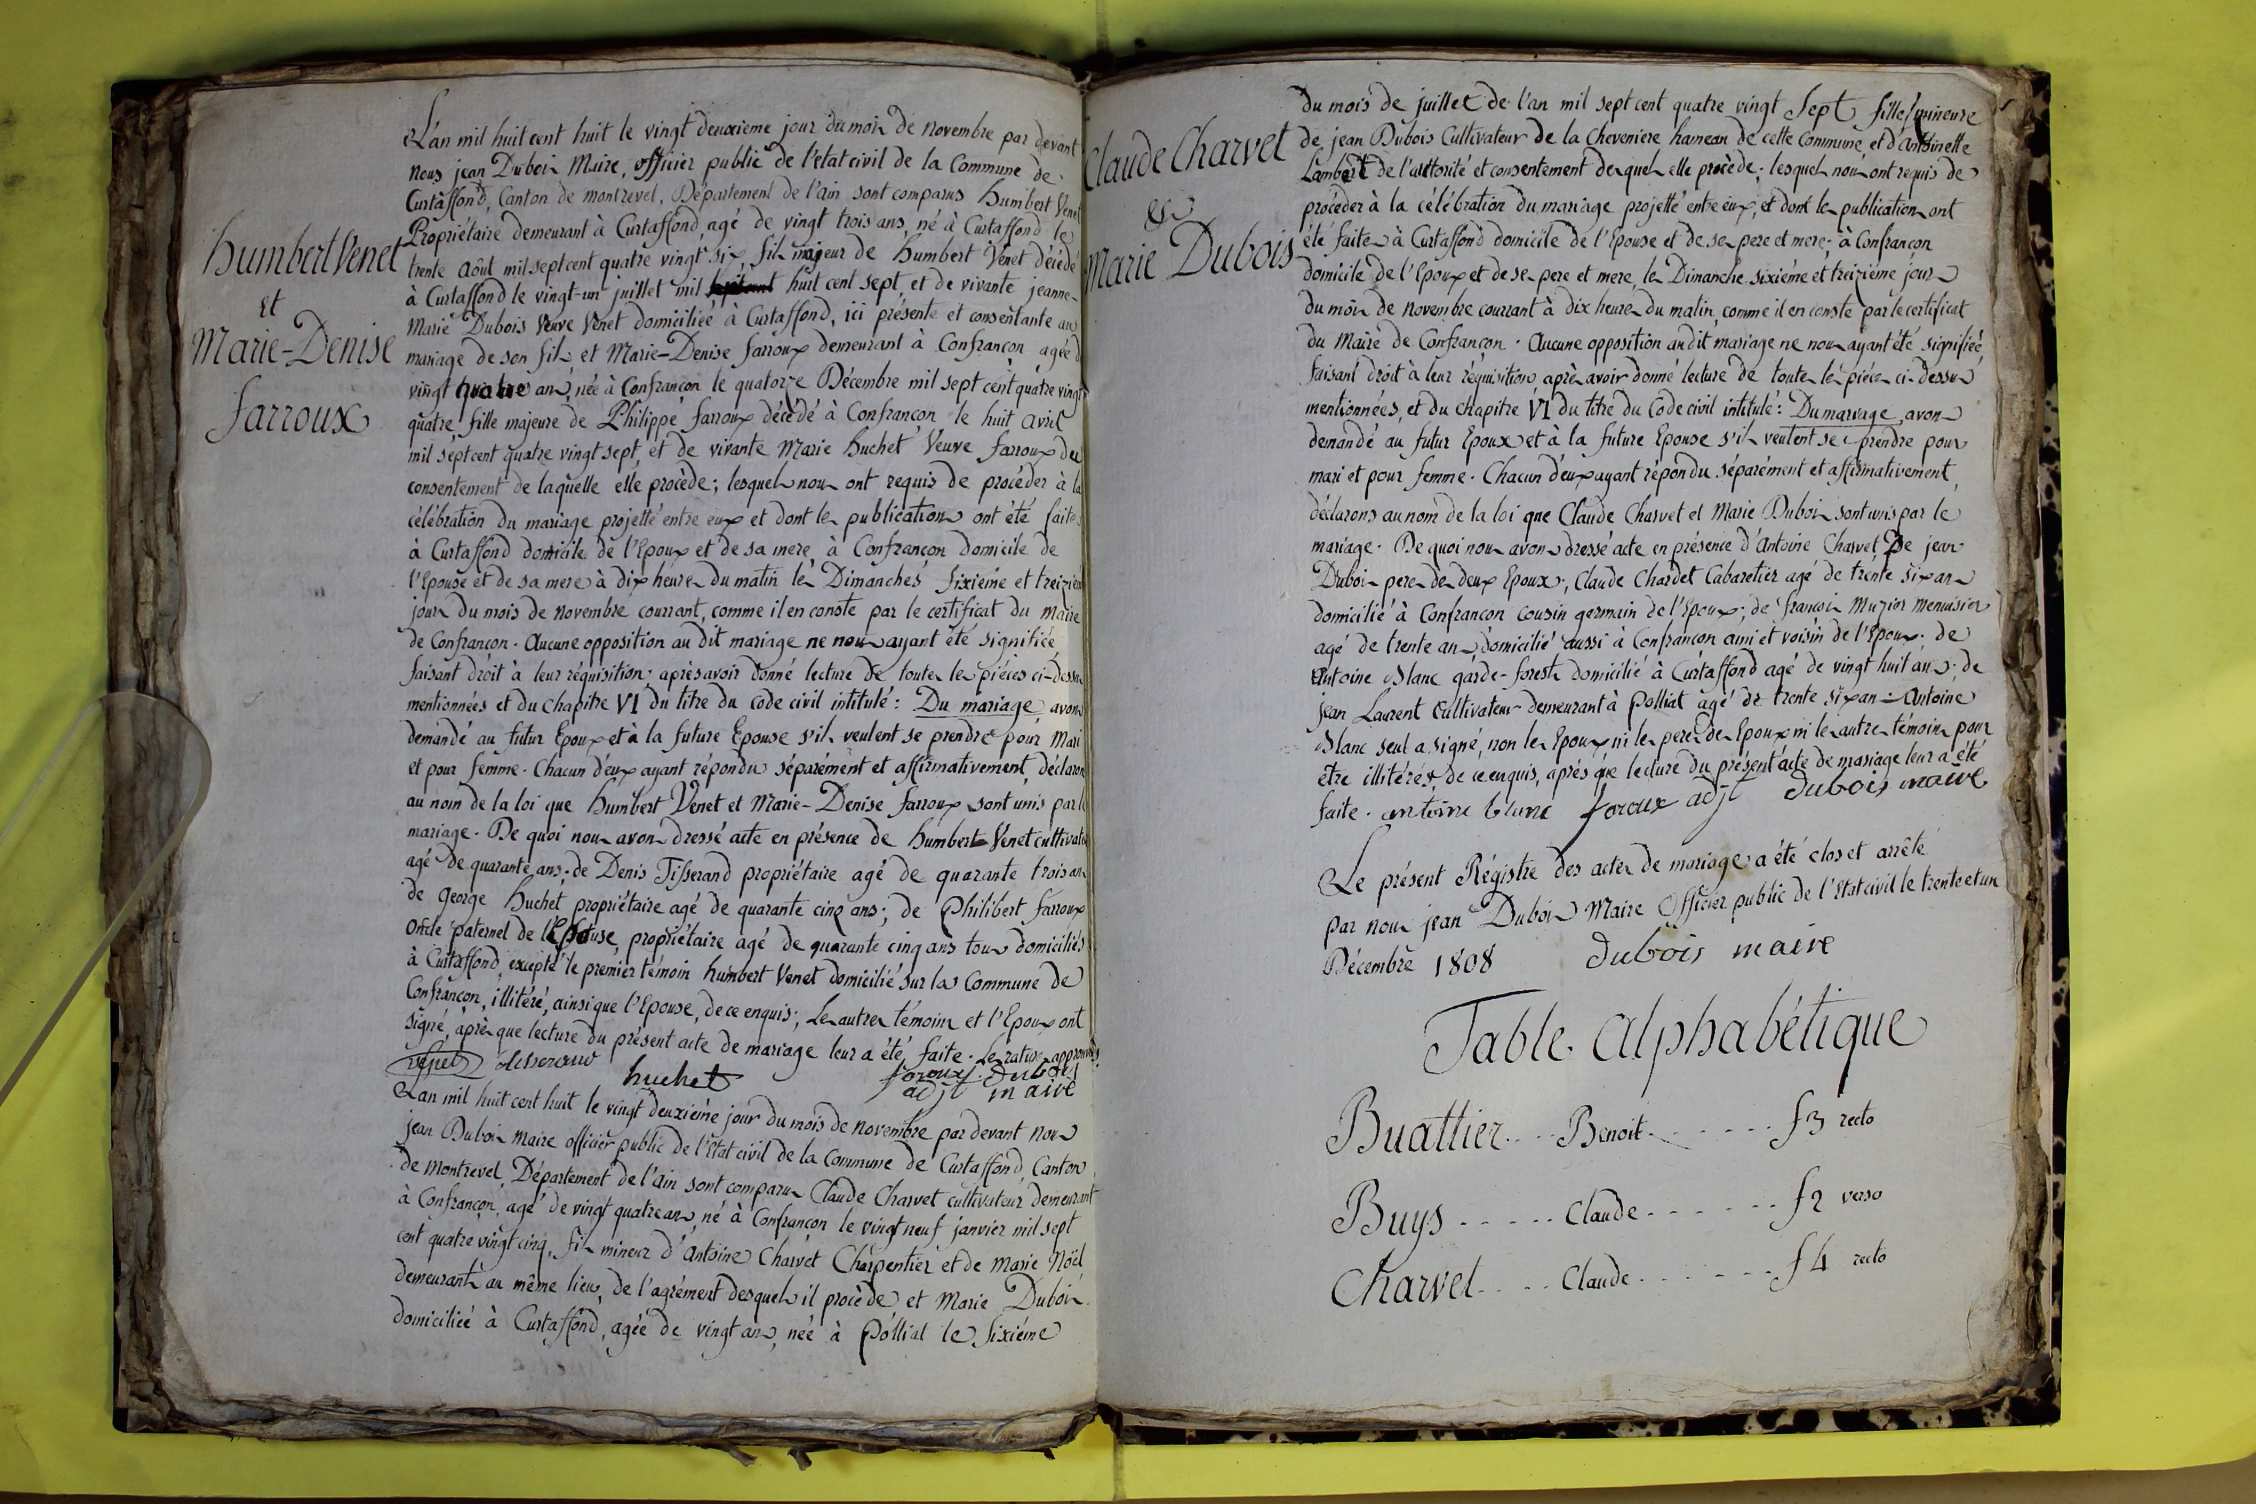 Humbert Venet
et
Marie-Denise
farroux
L'an mil huit cent huit le vingt deuxieme jour du mois de novembre par devant
nous jean Dubois Maire, officier public de l'etat civil de la Commune de
Curtaffond, Canton de montrevel, Département de l'ain sont comparus humbert Venet
Propriétaire demeurant à Curtaffond, agé de vingt trois ans, né à Curtaffond le
trente Aôut mil sept cent quatre vingt six, fils majeur de humbert Venet décédé
à Curtaffond le vingt-un juillet mil huit cent sept, et de vivante jeanne-
Marie Dubois Veuve Venet domiciliée à Curtaffond, ici présente et consentante au
mariage de son fils, et Marie-Denise farroux demeurant à Confrançon agée de
vingt quatre ans, née à Confrançon le quatorze Décembre mil sept cent quatre vingt
quatre fille majeure de Philippe farroux décédé à Confrançon le huit avril
mil sept cent quatre vingt sept, et de vivante Marie huchet Veuve farroux du
consentement de laquelle elle procède; lesquels nous ont requis de procéder à la
célébration du mariage projetté entre eux et dont les publications ont été faites
à Curtaffond domicile de l'Epoux et de sa mere, à Confrançon domicile de
l'Epouse et de sa mere à dix heures du matin les Dimanches sixieme et treizième
jours du mois de novembre courrant, comme il en conste par le certificat du maire
de Confrançon. Aucune opposition au dit mariage ne nous ayant été signifiée
faisant droit à leur réquisition, après avoir donné lecture de toutes les piéces ci-dessus
mentionnées et du chapitre VI du titre du code civil intitulé: Du mariage, avons
demandé au futur Epoux et à la future Epouse s'ils veulent se prendre pour Mari
et pour femme. Chacun d'eux ayant répondu séparément et affirmativement, déclarons
au nom de la loi que humbert Venet et Marie-Denise farroux sont unis par le
mariage. De quoi nous avons dressé acte en présence de humbert Venet cultivateur
agé de quarante ans, de Denis Tisserand propriétaire agé de quarante trois ans
de george huchet propriétaire agé de quarante cinq ans; de Philibert farroux
Oncle paternel de l'Epouse, propriétaire agé de quarante cinq ans tous domiciliés
à Curtaffond, excepté le premier témoin humbert Venet domicilié sur la Commune de
Confrançon, illitéré, ainsi que l'Epouse, de ce enquis; les autres témoins et l'Epoux ont
signé, après que lecture du présent acte de mariage leur a été faite. Les ratures approuvées
huchet foroux adjt Dubois maire
L'an mil huit cent huit le vingt deuxiéme jour du mois de novembre par devant nous
jean Dubois maire officier public de l'Etat civil de la Commune de Curtaffond, Canton
de montrevel, Département de l'ain sont comparus Claude Charvet cultivateur, demeurant
à Confrançon, agé de vingt quatre ans, né à Confrançon le vingt neuf janvier mil sept
cent quatre vingt cinq, fils mineur d'antoine Charvet Charpentier et de Marie Noël
demeurants au même lieu, de l'agrément desquels il procède, et Marie Dubois
domiciliée à Curtaffond, agée de vingt ans, née à Polliat le sixiéme
Claude Charvet
et
Marie Dubois
du mois de juillet de l'an mil sept cent quatre vingt sept fille mineure
de jean Dubois Cultivateur de la Cheveniere hameau de cette Commune et d'antoinette
Lambert de l'autorité et consentement desquels elle procède; lesquels nous ont requis de
procéder à la célébration du mariage projetté entre eux, et dont les publications ont
été faites à Curtaffond domicile de l'Epouse et de ses pere et mere; à Confrançon
domicile de l'Epoux et de ses pere et mere, les Dimanches sixiéme et treiziéme jours
du mois de novembre courrant à dix heures du matin, comme il en conste par le certificat
du Maire de Confrançon. Aucune opposition au dit mariage ne nous ayant été signifiée,
faisant droit à leur réquisition, après avoir donné lecture de toutes les piéces ci-dessus
mentionnées, et du chapitre VI du titre du Code civil intitulé: Du mariage, avons
demandé au futur Epoux et à la future Epouse s'ils veulent se prendre pour
mari et pour femme. Chacun d'eux ayant répondu séparément et affirmativement,
déclarons au nom de la loi que Claude Charvet et Marie Dubois sont unis par le
mariage. De quoi nous avons dressé acte en présence d'antoine Charvet, de jean
Dubois peres des deux Epoux; Claude Chardet Cabaretier agé de trente six ans
domicilié à Confrançon cousin germain de l'Epoux; de françois Muzior menuisier
agé de trente ans, domicilié aussi à Confrançon ami et voisin de l'Epoux. de
antoine Blanc garde-forest domicilié à Curtaffond agé de vingt huit ans; de
jean Laurent Cultivateur demeurant à Polliat agé de trente six ans. Antoine
Blanc seul a signé, non les Epoux ni les peres des Epoux ni les autres témoins pour
être illitérés, de ce enquis, après que lecture du présent acte de mariage leur a été
faite. antoine blanc foroux adjt dubois maire
Le présent Régistre des actes de mariage a été clos et arrêté
par nous jean Dubois Maire Officier public de l'Etat civil le trente et un
Décembre 1808 dubois maire
Table Alphabétique
Buattier.... Benoit....... f 3 recto
Buys ..... Claude ....... f 2 verso
Charvet.... Claude....... f 4 recto